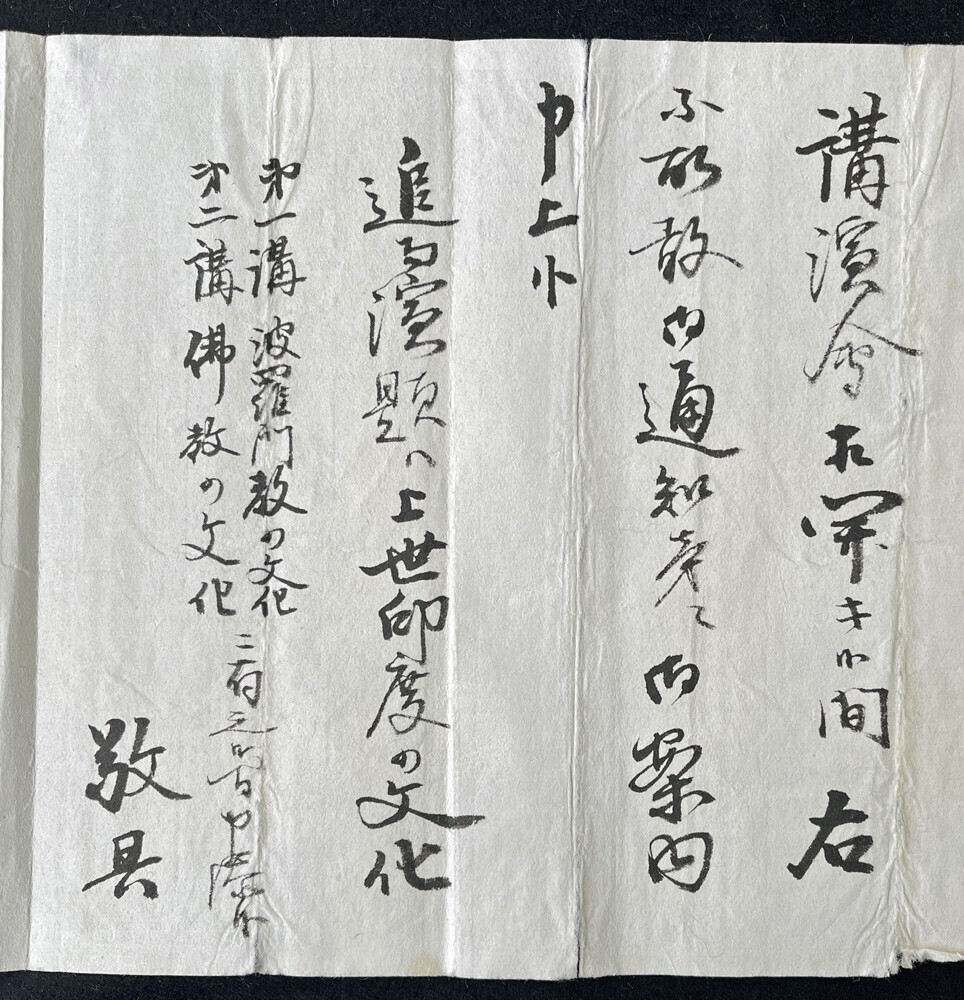 講演會相開キ候間 右
不取敢御通知旁々御案内
申上候
追而演題ハ上世印度の文化
第一講 波羅門教の文化
第二講 佛教の文化
ニ有之候旨申添候
敬具